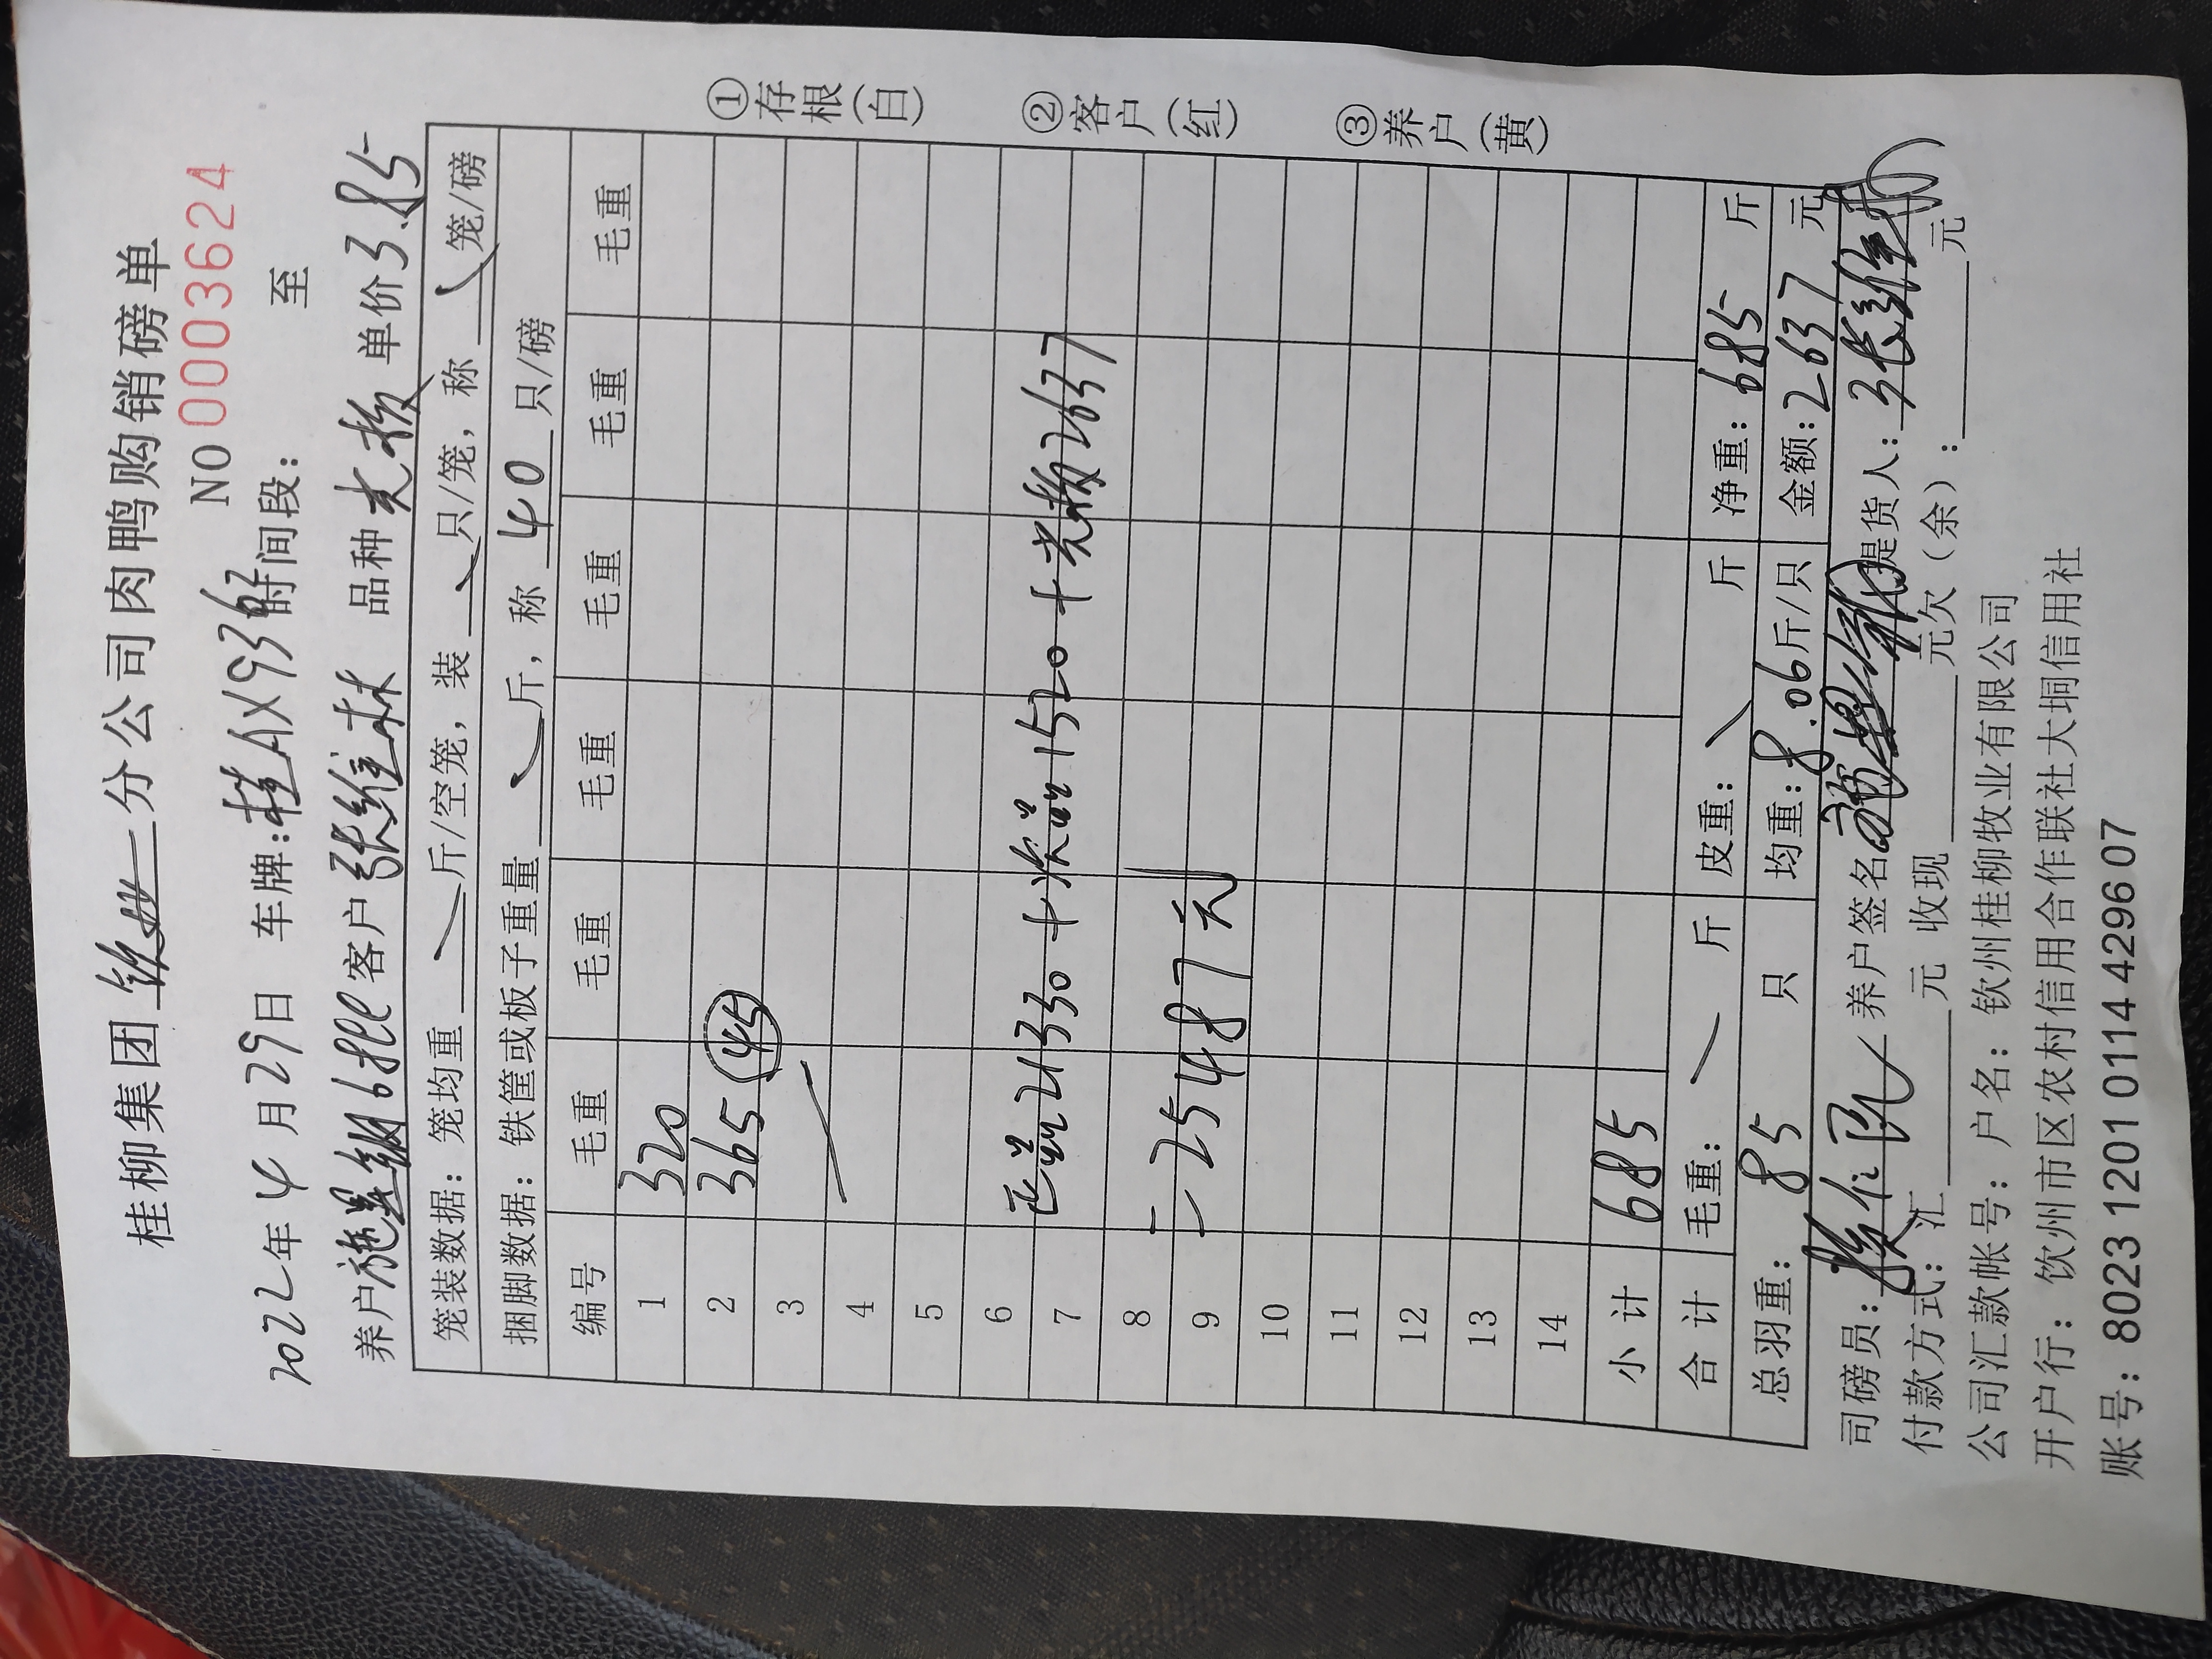 桂柳集团钦州分公司肉鸭购销磅单
NO 0003624
2022年4月29日 车牌:桂AX9362时间段: 至
养户施 6批 客户张维林 品种光板 单价3.85
笼装数据: 笼均重 斤/空笼, 装 只/笼, 称 笼/磅
捆脚数据: 铁筐或板子重量 斤, 称 40 只/磅
编号 毛重 毛重 毛重 毛重 毛重 毛重
1 320
2 365 (45)
3
4
5
6
7 正品21330+次品1520+光板2637
8
9 =25487元
10
11
12
13
14
小计 685
合计 毛重: 斤 皮重: 斤 净重: 685 斤
总羽重: 85 只 均重: 8.06斤/只 金额: 2637 元
司磅员: 养户签名 提货人: 张维林
付款方式: 汇 元 收现 元欠(余): 元
公司汇款帐号: 户名: 钦州桂柳牧业有限公司
开户行: 钦州市区农村信用合作联社大垌信用社
账号: 8023 1201 0114 4296 07
①存根(白) ②客户(红) ③养户(黄)